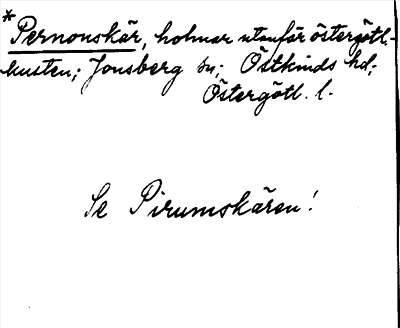 *Pernonskär, holmar utanför östergötl.-
kusten; Jonsberg sn; Östkinds hd;
Östergötl. l.
Se Pirumskären!